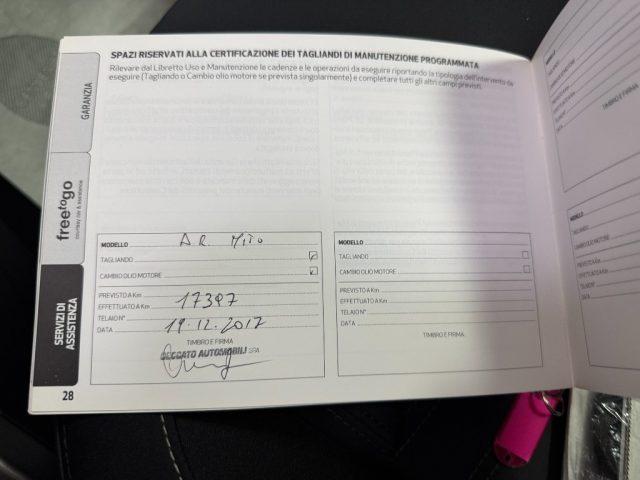 SPAZI RISERVATI ALLA CERTIFICAZIONE DEI TAGLIANDI DI MANUTENZIONE PROGRAMMATA
Rilevare dal Libretto Uso e Manutenzione le cadenze e le operazioni da eseguire riportando la tipologia dell'intervento da
eseguire (Tagliando o Cambio olio motore se prevista singolarmente) e completare tutti gli altri campi previsti.
GARANZIA
freetogo
courtesy ride & assistance
SERVIZI DI
ASSISTENZA
MODELLO A.R. MITO
TAGLIANDO
CAMBIO OLIO MOTORE
PREVISTO A Km
EFFETTUATO A Km 17397
TELAIO N°
DATA 19.12.2017
TIMBRO E FIRMA
AUTOMOBILI SPA
MODELLO
TAGLIANDO
CAMBIO OLIO MOTORE
PREVISTO A Km
EFFETTUATO A Km
TELAIO N°
DATA
TIMBRO E FIRMA
28
TIMBRO E FIRMA
MODELLO
TAGLIANDO
CAMBIO OLIO MOTORE
PREVISTO A Km
EFFETTUATO A Km
TELAIO N°
DATA